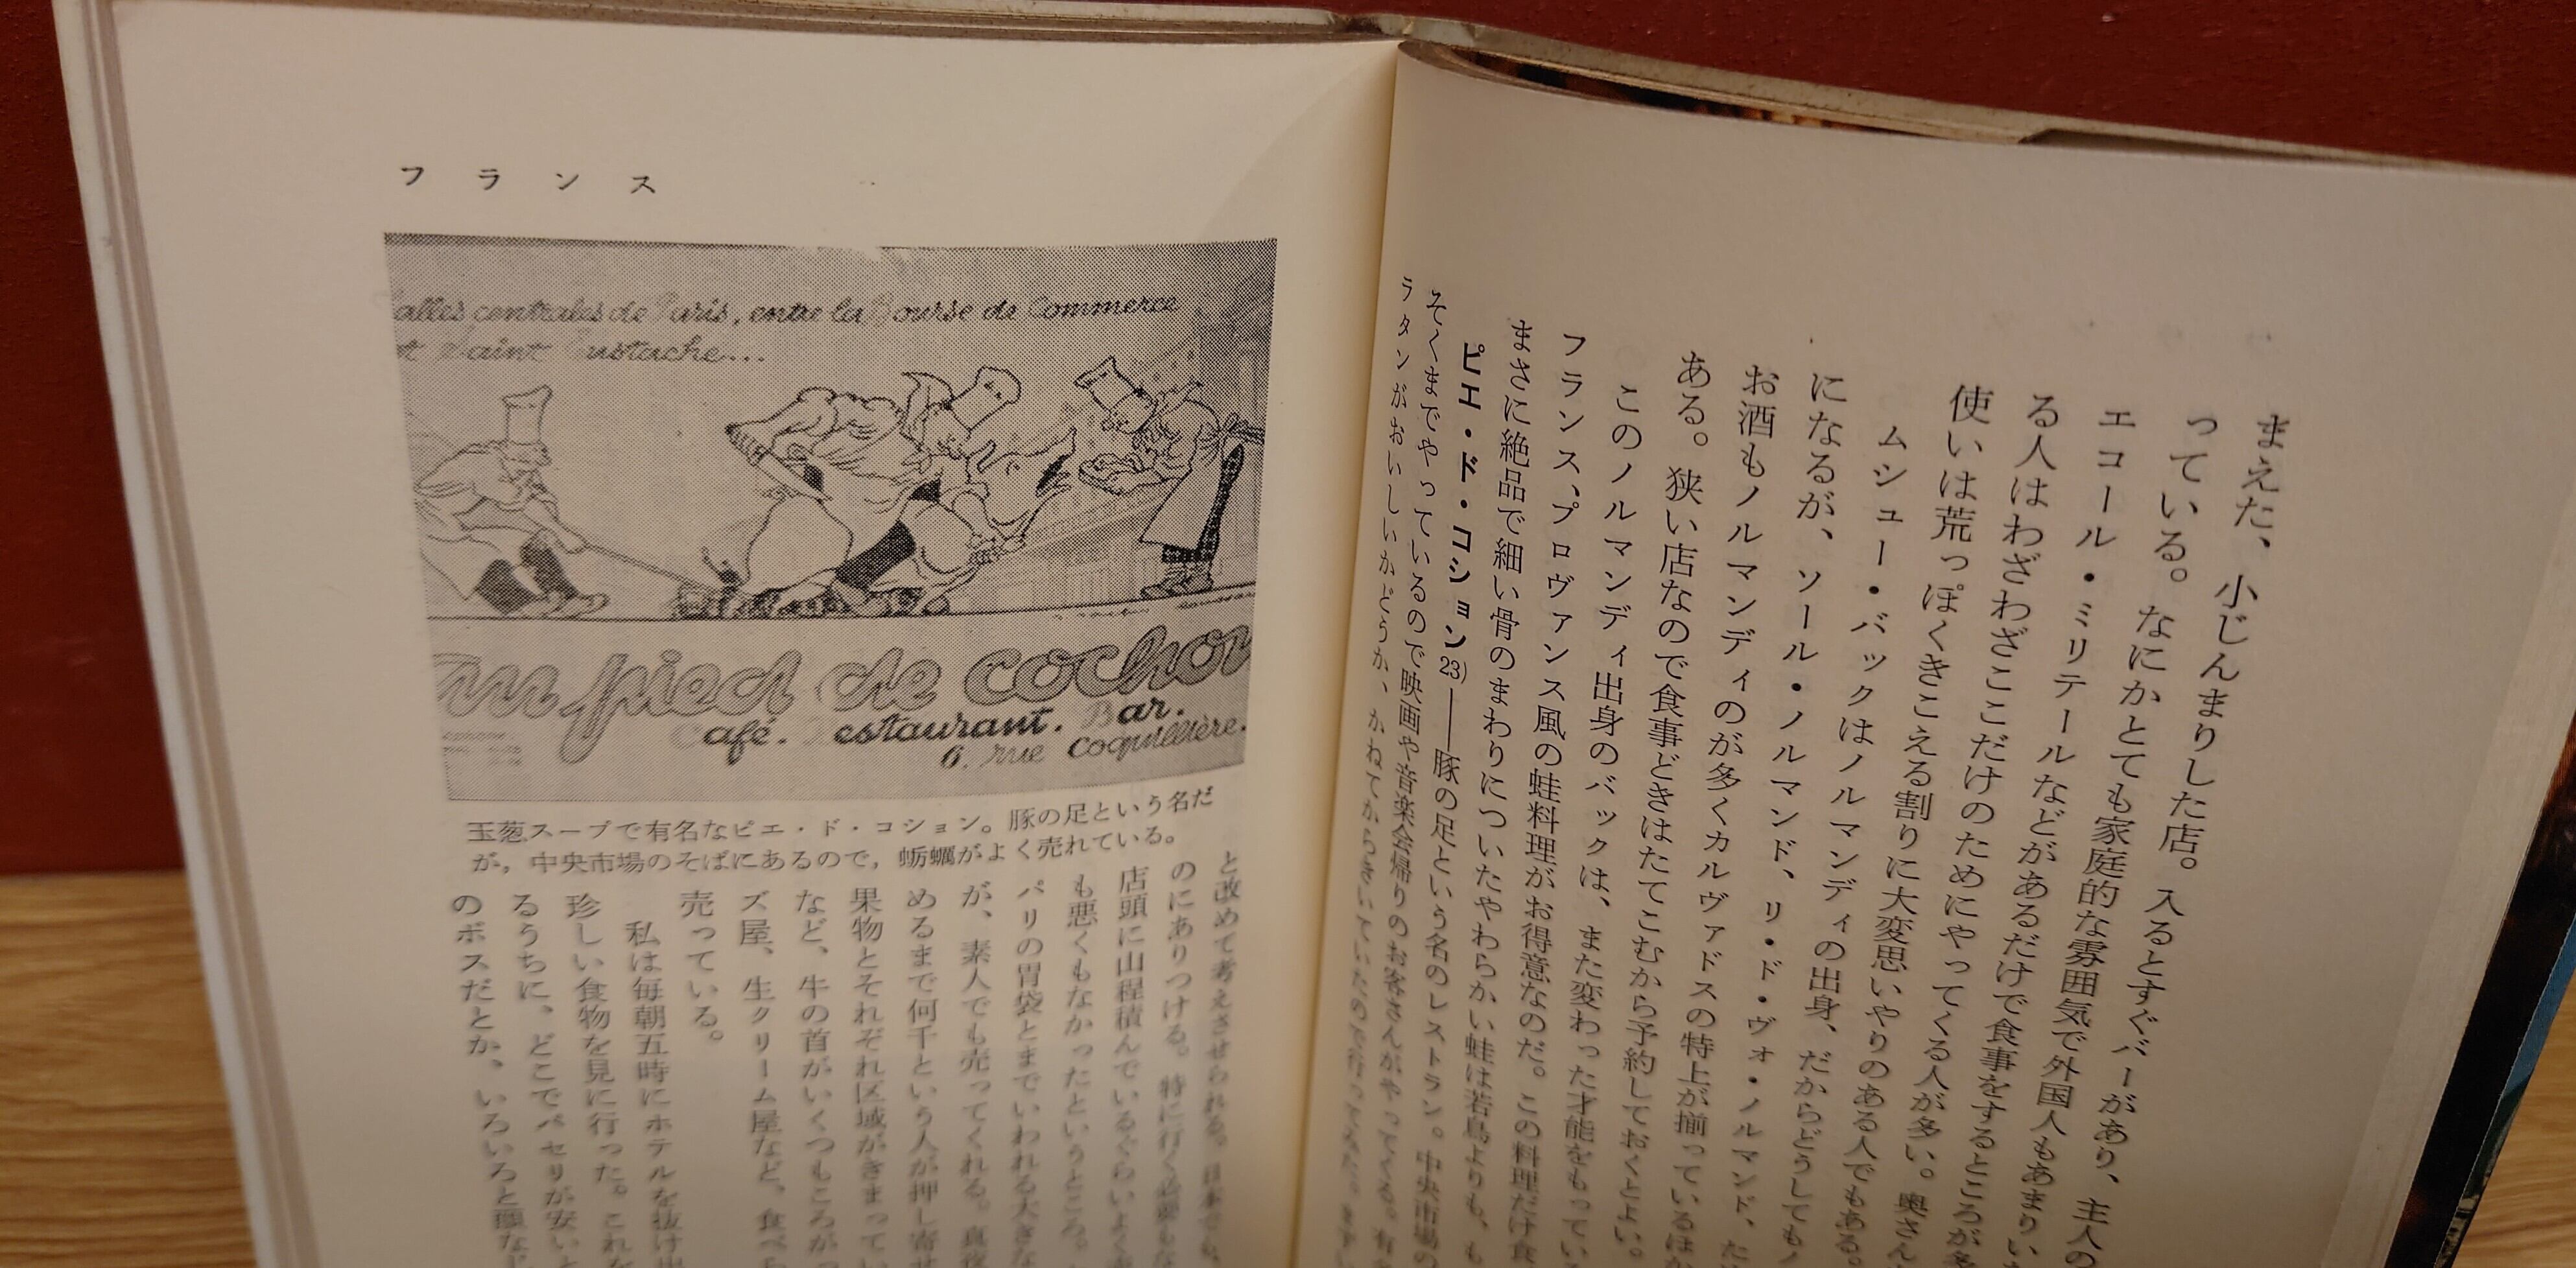 まえた、小じんまりした店。入るとすぐバーがあり、主人の
っている。なにかとても家庭的な雰囲気で外国人もあまりい
エコール・ミリテールなどがあるだけで食事をするところが多
る人はわざわざここだけのためにやってくる人が多い。奥さん
使いは荒っぽくきこえる割りに大変思いやりのある人でもある。
ムシュー・バックはノルマンディの出身、だからどうしてもノ
になるが、ソール・ノルマンド、リ・ド・ヴォ・ノルマンド、た
お酒もノルマンディのが多くカルヴァドスの特上が揃っているほか
ある。狭い店なので食事どきはたてこむから予約しておくとよい。
このノルマンディ出身のバックは、また変わった才能をもってい
フランス、プロヴァンス風の蛙料理がお得意なのだ。この料理だけ食
まさに絶品で細い骨のまわりについたやわらかい蛙は若鳥よりも、も
ピエ・ド・コション23)――豚の足という名のレストラン。中央市場の
そくまでやっているので映画や音楽会帰りのお客さんがやってくる。
ラタンがおいしいかどうか、かねてから
フランス
alles centrales de Paris, entre la Bourse de Commerce
et Saint Eustache....
Au pied de cochon
Café. Restaurant. Bar.
6. rue Coquillière.
玉葱スープで有名なピエ・ド・コション。豚の足という名だ
が，中央市場のそばにあるので，蛎蠣がよく売れている。
と改めて考えさせられる。日本でも、
のにありつける。特に行く必要もな
店頭に山程積んでいるぐらいよく
も悪くもなかったというところ。
パリの胃袋とまでいわれる大きな
が、素人でも売ってくれる。真夜
めるまで何千という人が押し寄せ
果物とそれぞれ区域がきまってい
など、牛の首がいくつもころがっ
ズ屋、生クリーム屋など、食べ
売っている。
私は毎朝五時にホテルを抜け出
珍しい食物を見に行った。これを
るうちに、どこでパセリが安いと
のボスだとか、いろいろと顔な